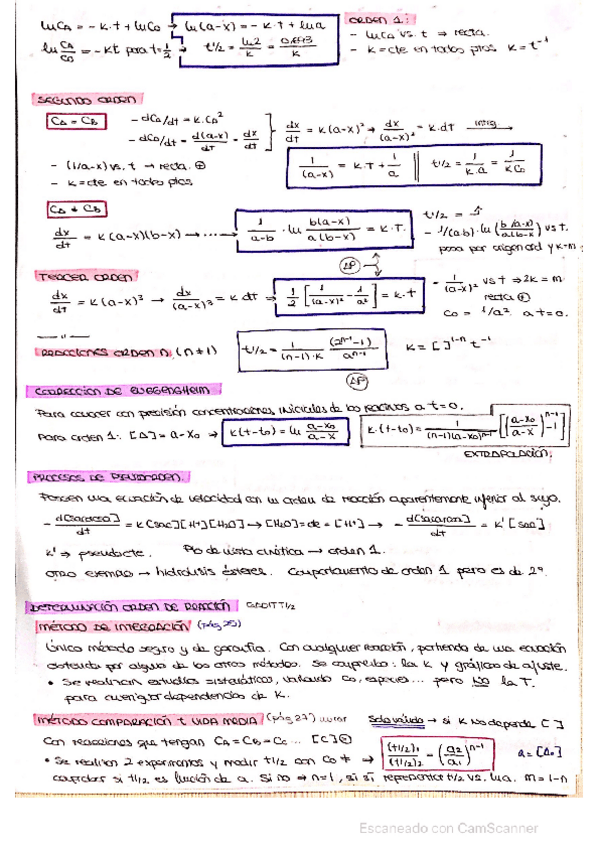 lnCA = -K·t + lnC0 → ln(a-x) = -K·t + lna
ln CA/C0 = -Kt para t=1/2 → t1/2 = ln2/K = 0,693/K
ORDEN 1:
- lnCA vs. t ⇒ recta.
- K = cte en todos ptos K = t⁻¹
SEGUNDO ORDEN
CA = CB
-dCA/dt = K·CA²
-dCA/dt = d(a-x)/dt = dx/dt
dx/dt = K(a-x)² → dx/(a-x)² = K·dt integ.
- (1/a-x) vs. t → recta ⊕
- K = cte en todos ptos
1/(a-x) = K·T + 1/a || t1/2 = 1/K·a = 1/KC0
CA ≠ CB
dx/dt = K(a-x)(b-x) → ..... → 1/a-b · ln b(a-x)/a(b-x) = K·T.
t1/2 =
- 1/(a-b)·ln(b(a-x)/a(b-x)) vs t.
pasa por origen ord y K=m
TERCER ORDEN
dx/dt = K(a-x)³ → dx/(a-x)³ = K dt ⇒ 1/2 [1/(a-x)² - 1/a²] = K·t
- 1/(a-x)² vs t ⇒ 2K = m
recta ⊕
C0 = 1/a² a t=0.
REACCIONES ORDEN n (n≠1)
t1/2 = 1/(n-1)·K (2ⁿ⁻¹-1)/aⁿ⁻¹
K = [ ]¹⁻ⁿ t⁻¹
CORRECCIÓN DE GUGGENHEIM:
Para conocer con precisión concentraciones iniciales de los reactivos a t=0.
Para orden 1: [A] = a-x0 → K(t-t0) = ln a-x0/a-x
K·(t-t0) = 1/(n-1)(a-x0)ⁿ⁻¹ [(a-x0/a-x)ⁿ⁻¹ -1]
EXTRAPOLACIÓN.
PROCESOS DE PSEUDORDEN.
Poseen una ecuación de velocidad con un orden de reacción aparentemente inferior al suyo.
-d[sacarosa]/dt = K[sac][H⁺][H2O] → [H2O] = cte = [H⁺] → -d[sacarosa]/dt = K'[sac]
K' → pseudocte. Pto de vista cinética → orden 1.
Otro ejemplo → hidrólisis ésteres. Comportamiento de orden 1 pero es de 2º.
DETERMINACIÓN ORDEN DE REACCIÓN
MÉTODO DE INTEGRACIÓN
Único método seguro y de garantía. Con cualquier reacción, partiendo de una ecuación
obtenida por alguno de los otros métodos. Se comprueba la K y gráficos de ajuste.
• Se realizan estudios sistemáticos, variando C0, especies... pero NO la T.
para averiguar dependencias de K.
MÉTODO COMPARACIÓN t VIDA MEDIA (pág 27)
Solo válido → si K No depende [ ]
Con reacciones que tengan CA = CB = CC ... [C]
• Se realizan 2 experimentos y medir t1/2 con C0 ≠ → (t1/2)1/(t1/2)2 = (a2/a1)ⁿ⁻¹ a = [A0]
comprobar si t1/2 es función de a. Si no ⇒ n=1, si sí representar t1/2 vs. lna. m = 1-n
Escaneado con CamScanner